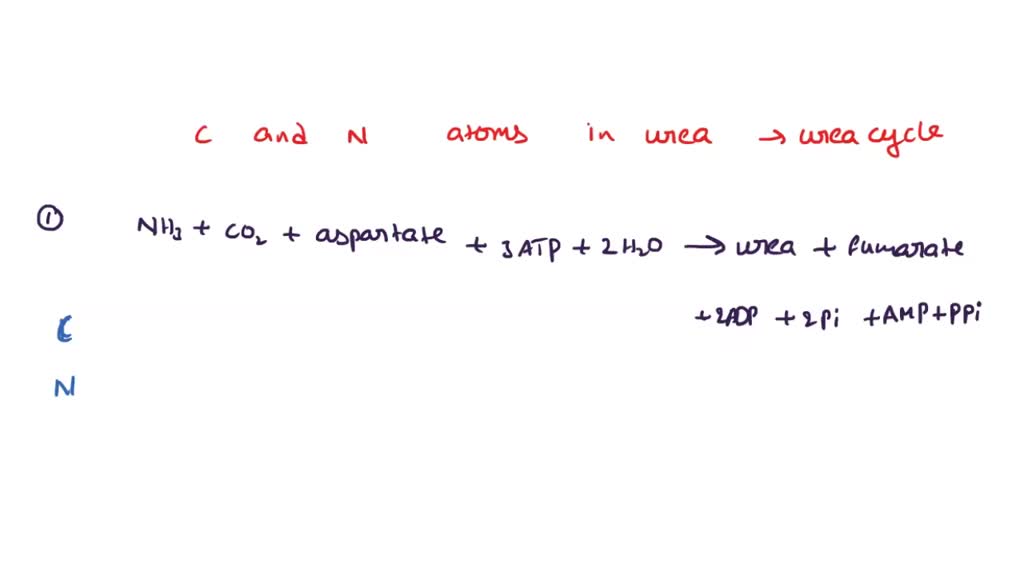 C and N atoms in urea → urea cycle
① NH3 + CO2 + aspartate + 3 ATP + 2 H2O → urea + fumarate
+ 2ADP + 2 Pi + AMP + PPi
C
N